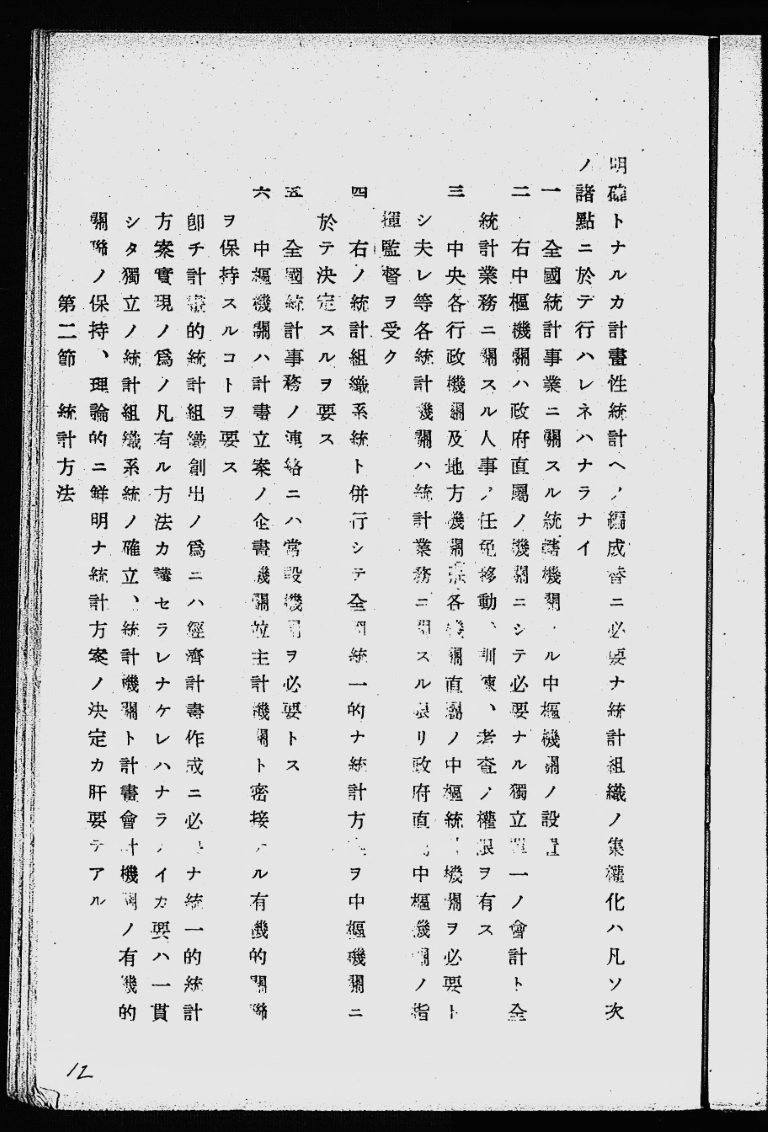 明確トナルカ計畫性統計ヘノ編成替ニ必要ナ統計組織ノ集權化ハ凡ソ次
ノ諸點ニ於テ行ハレネハナラナイ
一 全國統計事業ニ關スル統轄機關ル中樞機關ノ設置
二 右中樞機關ハ政府直屬ノ機關ニシテ必要ナル獨立單一ノ會計ト全
統計業務ニ關スル人事ノ任免移動、訓練、考査ノ權限ヲ有ス
三 中央各行政機關及地方機關ハ各機關直屬ノ中樞統計機關ヲ必要ト
シ夫レ等各統計機關ハ統計業務ニ關スル限リ政府直屬中樞機關ノ指
揮監督ヲ受ク
四 右ノ統計組織系統ト併行シテ全國統一的ナ統計方ヲ中樞機關ニ
於テ決定スルヲ要ス
五 全國統計事務ノ連絡ニハ常設機關ヲ必要トス
六 中樞機關ハ計畫立案ノ企畫機關並主計機關ト密接ナル有機的關聯
ヲ保持スルコトヲ要ス
卽チ計畫的統計組織創出ノ爲ニハ經濟計畫作成ニ必要ナ統一的統計
方案實現ノ爲ノ凡有ル方法カ講セラレナケレハナラナイカ要ハ一貫
シタ獨立ノ統計組織系統ノ確立、統計機關ト計畫會計機關ノ有機的
關聯ノ保持、理論的ニ鮮明ナ統計方案ノ決定カ肝要テアル
第二節 統計方法
12